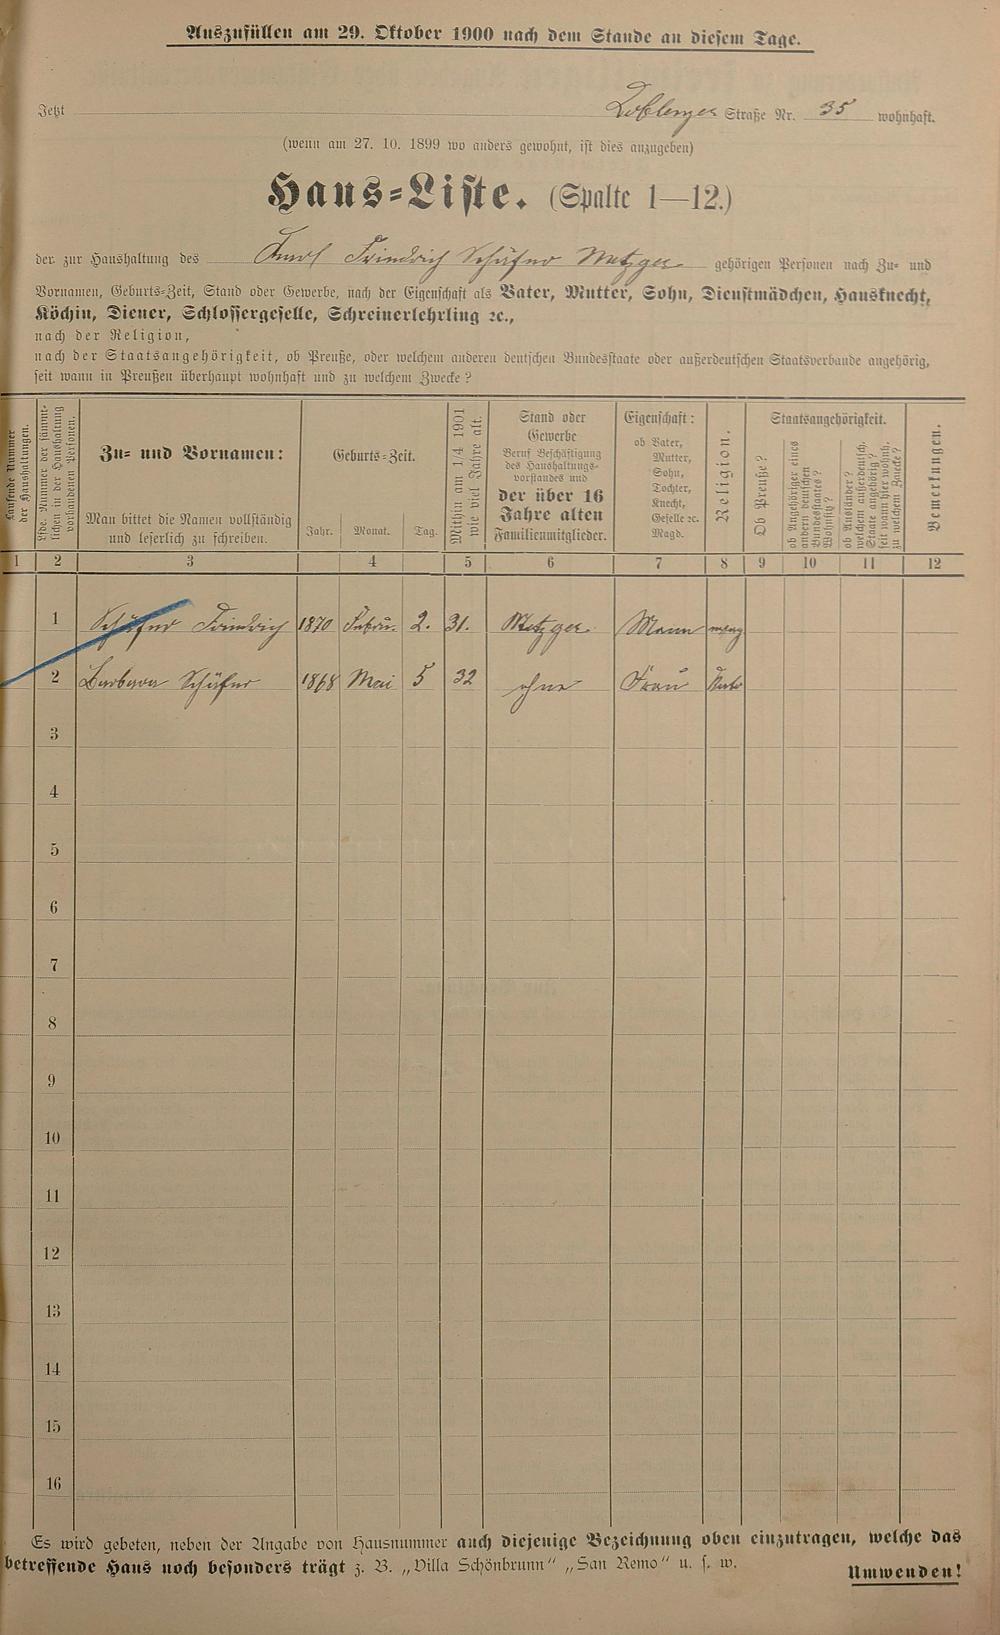 Auszufüllen am 29. Oktober 1900 nach dem Stande an diesem Tage.
Jetzt Koblenzer Straße Nr. 35 wohnhaft.
(wenn am 27. 10. 1899 wo anders gewohnt, ist dies anzugeben)
Haus=Liste. (Spalte 1—12.)
der zur Haushaltung des Karl Friedrich Schäfer Metzger gehörigen Personen nach Zu= und
Vornamen, Geburts=Zeit, Stand oder Gewerbe, nach der Eigenschaft als Vater, Mutter, Sohn, Dienstmädchen, Hausknecht,
Köchin, Diener, Schlossergeselle, Schreinerlehrling ꝛc.,
nach der Religion,
nach der Staatsangehörigkeit, ob Preuße, oder welchem anderen deutschen Bundesstaate oder außerdeutschen Staatsverbande angehörig,
seit wann in Preußen überhaupt wohnhaft und zu welchem Zwecke?
Laufende Nummer
der Haushaltungen.
Lfde. Nummer der sämmt-
lichen in der Haushaltung
vorhandenen Personen.
Zu= und Vornamen:
Man bittet die Namen vollständig
und leserlich zu schreiben.
Geburts=Zeit.
Jahr. Monat. Tag.
Mithin am 1/4 1901
wie viel Jahre alt.
Stand oder
Gewerbe
Beruf Beschäftigung
des Haushaltungs-
vorstandes und
der über 16
Jahre alten
Familienmitglieder.
Eigenschaft:
ob Vater,
Mutter,
Sohn,
Tochter,
Knecht,
Geselle ꝛc.
Magd.
Religion.
Staatsangehörigkeit.
Ob Preuße?
ob Angehöriger eines
andern deutschen
Bundesstaates?
Wohnsitz?
ob Ausländer?
welchem außerdeutsch.
Staate angehörig?
seit wann hier wohnh.
zu welchem Zwecke?
Bemerkungen.
1 2 3 4 5 6 7 8 9 10 11 12
1 Schäfer Friedrich 1870 Febru. 2. 31. Metzger Mann
2 Barbara Schäfer 1868 Mai 5 32 ohne Frau Kath
3
4
5
6
7
8
9
10
11
12
13
14
15
16
Es wird gebeten, neben der Angabe von Hausnummer auch diejenige Bezeichnung oben einzutragen, welche das
betreffende Haus noch besonders trägt z. B. „Villa Schönbrunn“ „San Remo“ u. s. w.
Umwenden!